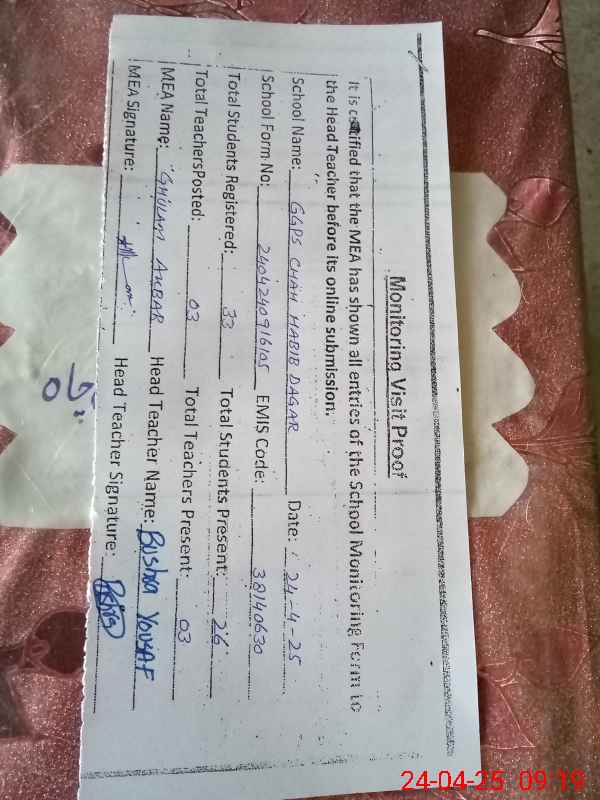 Monitoring Visit Proof
It is certified that the MEA has shown all entries of the School Monitoring Form to
the Head Teacher before its online submission.
School Name: GGPS CHAH HABIB DAGAR Date: 24-4-25
School Form No: 2404240916105 EMIS Code: 38140630
Total Students Registered: 33 Total Students Present: 26
Total TeachersPosted: 03 Total Teachers Present: 03
MEA Name: GHULAM AKBAR Head Teacher Name: Bushra Yousaf
MEA Signature: Head Teacher Signature:
24-04-25 09:19